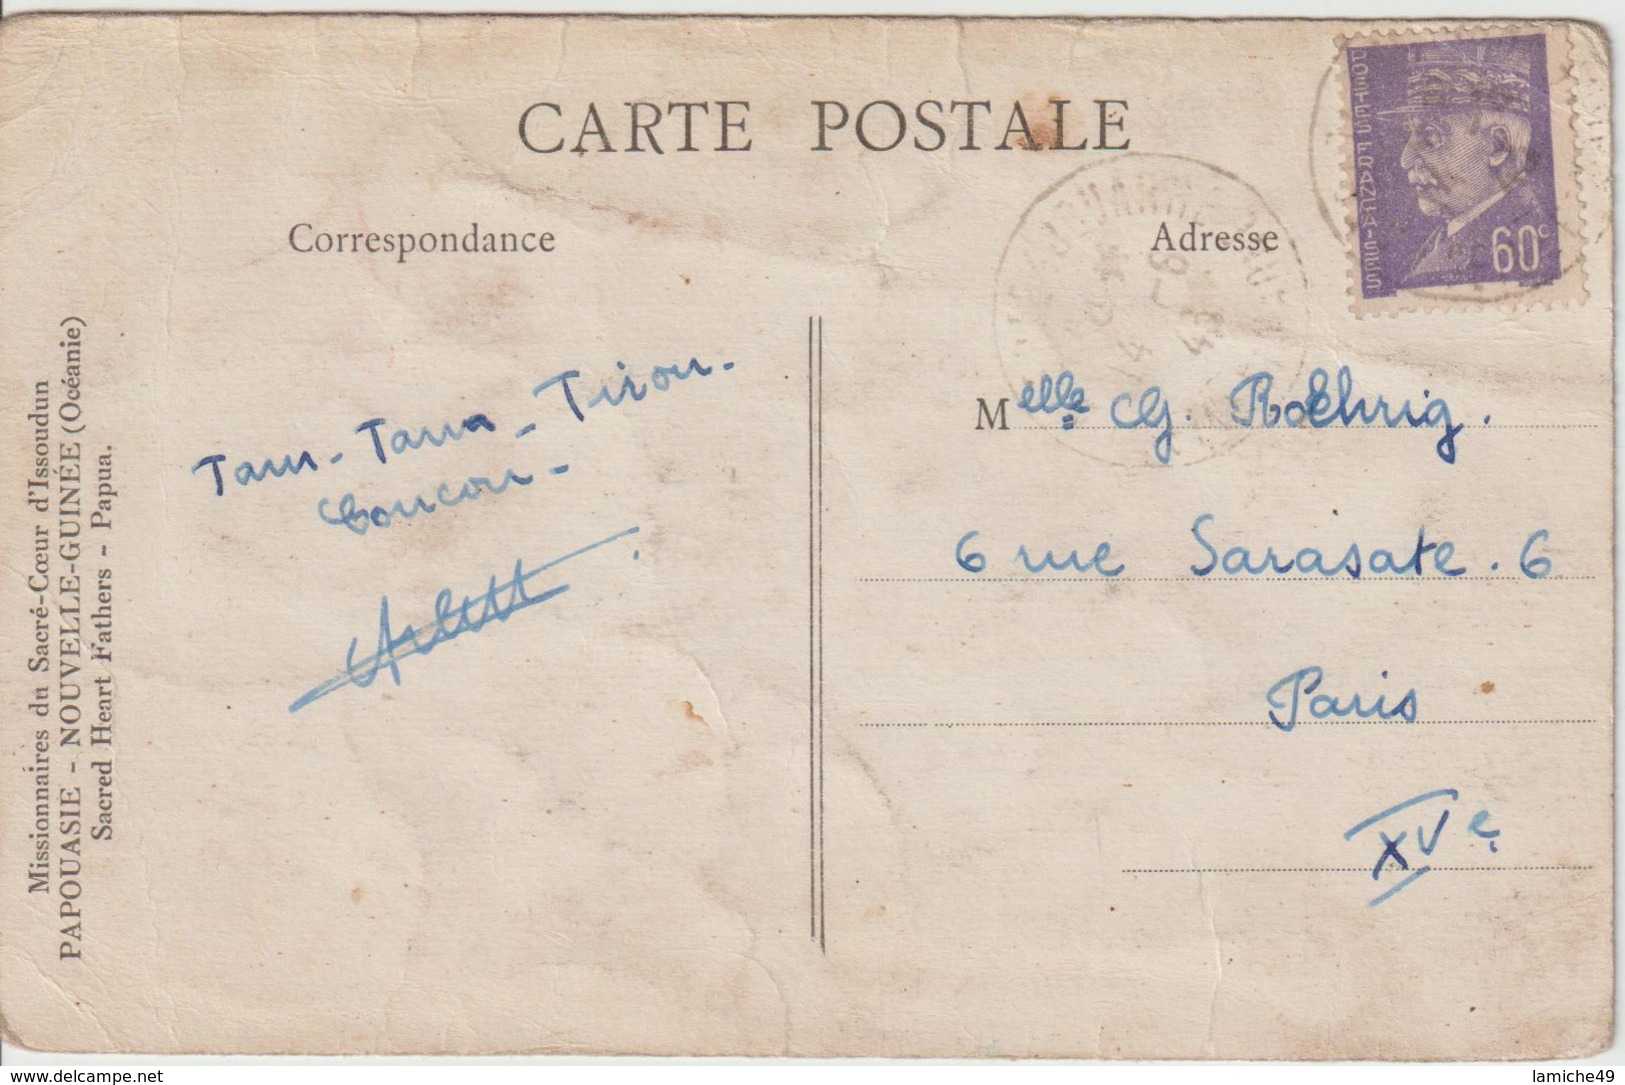 CARTE POSTALE
Correspondance
Adresse
POSTES FRANÇAISES
60c
Missionnaires du Sacré-Cœur d'Issoudun
PAPOUASIE - NOUVELLE-GUINÉE (Océanie)
Sacred Heart Fathers - Papua.
Tam-Tam-Tirou-
Coucou-
Melle G. Roehrig.
6 rue Sarasate. 6
Paris
XVe
www.delcampe.net
lamiche49